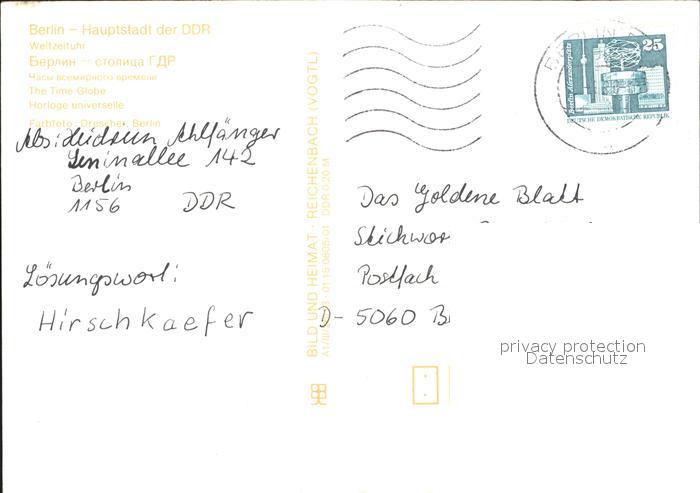 Berlin – Hauptstadt der DDR
Weltzeituhr
Берлин – столица ГДР
Часы всемирного времени
The Time Globe
Horloge universelle
Farbfoto: Drescher, Berlin
Abs: Heidrun Ahlfänger
Leninallee 142
Berlin
1156 DDR
Lösungswort:
Hirschkaefer
BILD UND HEIMAT · REICHENBACH (VOGTL)
DDR 0,20 M
BERLIN
25
Berlin Alexanderplatz
DEUTSCHE DEMOKRATISCHE REPUBLIK
Das Goldene Blatt
Stichwor
Postfach
D- 5060 B
privacy protection
Datenschutz